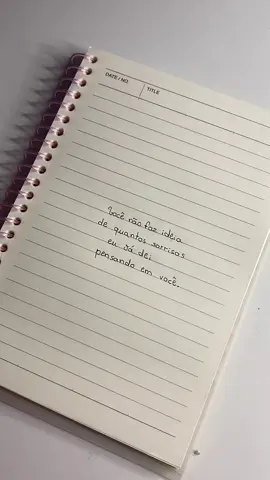 DATE / NO.
TITLE
Você não faz ideia
de quantos sorrisos
eu já dei
pensando em você.